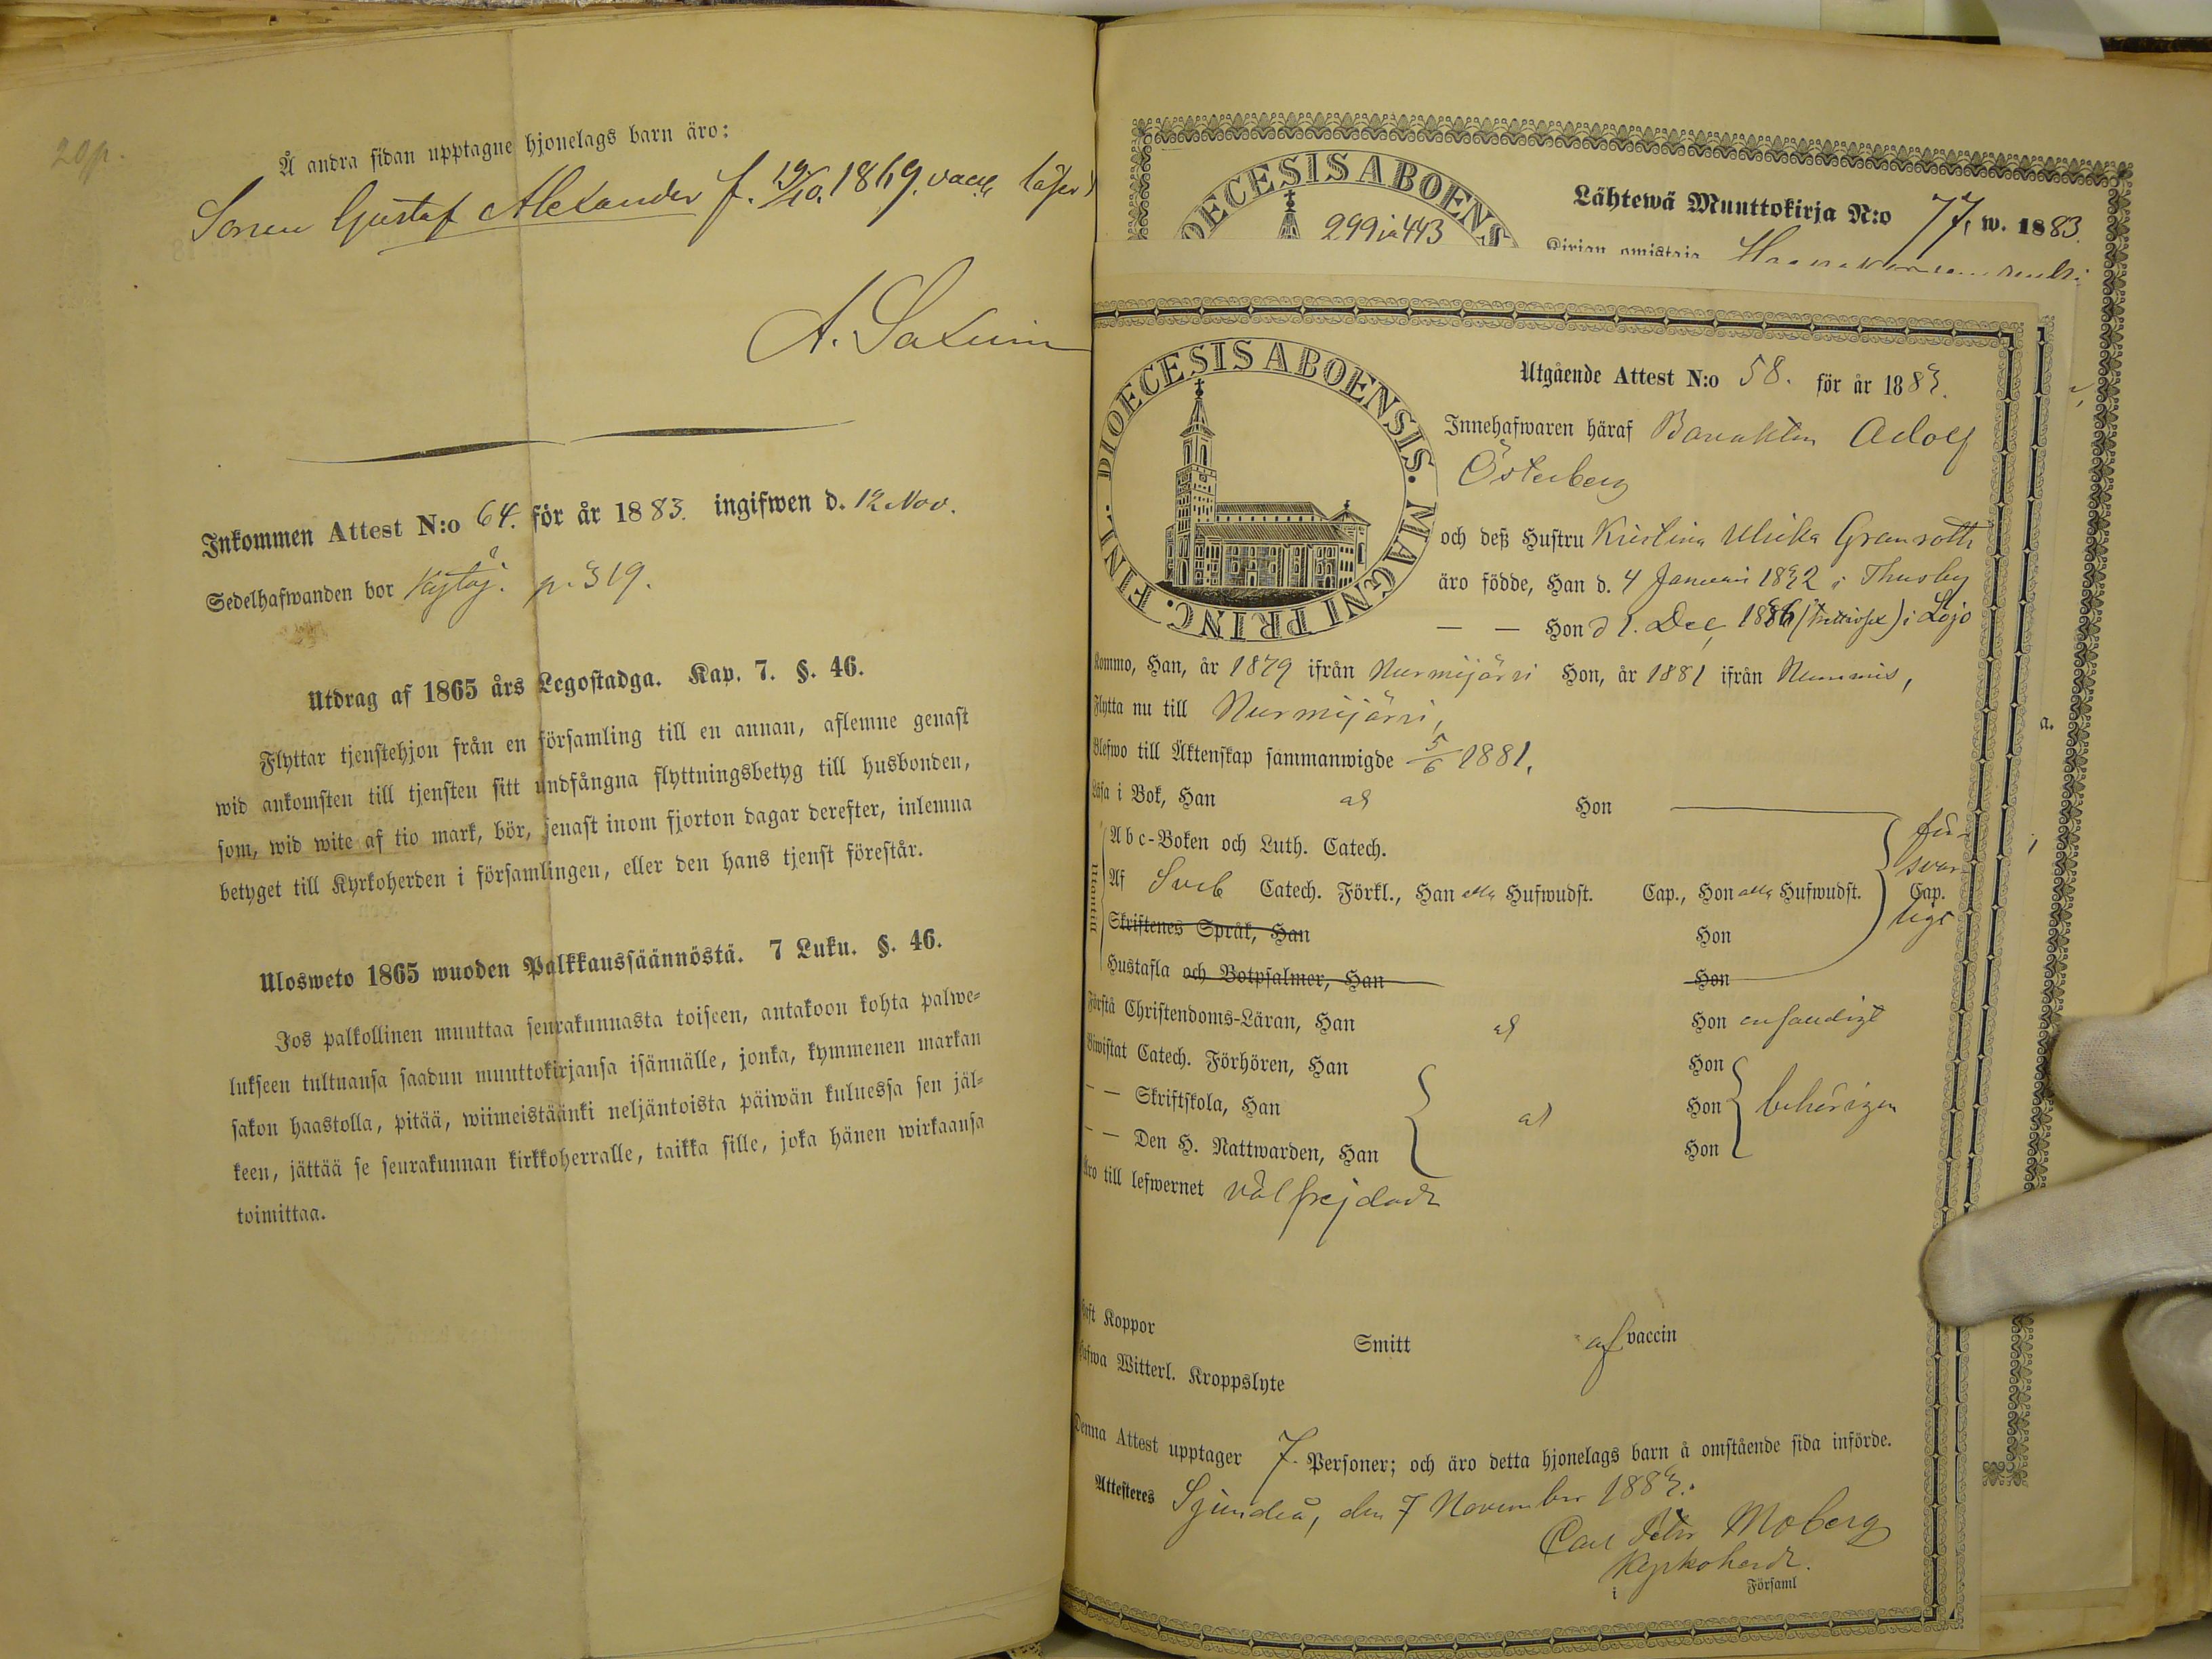 20p.
Å andra sidan upptagne hjonelags barn äro:
Sonen Gustaf Alexander f. 19/10. 1869. vacc. läser
A. Saxelin
Inkommen Attest N:o 64. för år 1883. ingifwen d. 12 Nov.
Sedelhafwanden bor p. 319.
Utdrag af 1865 års Legostadga. Kap. 7. §. 46.
Flyttar tjenstehjon från en församling till en annan, aflemne genast
wid ankomsten till tjensten sitt undfångna flyttningsbetyg till husbonden,
som, wid wite af tio mark, bör, senast inom fjorton dagar derefter, inlemna
betyget till Kyrkoherden i församlingen, eller den hans tjenst förestår.
Ulosweto 1865 wuoden Palkkaussäännöstä. 7 Luku. §. 46.
Jos palkollinen muuttaa seurakunnasta toiseen, antakoon kohta palwe-
lukseen tultuansa saadun muuttokirjansa isännälle, jonka, kymmenen markan
sakon haastolla, pitää, wiimeistäänki neljäntoista päiwän kuluessa sen jäl-
keen, jättää se seurakunnan kirkkoherralle, taikka sille, joka hänen wirkaansa
toimittaa.
OECESIS ABOENS
299 ja 443
Lähtewä Muuttokirja N:o 77, w. 1883.
Kirjan omistaja
DIOECESIS ABOENSIS. MAGNI PRINC. FINL.
Utgående Attest N:o 58. för år 1883.
Innehafwaren häraf Adolf
Österberg
och deß Hustru Kristina Ulrika Granroth
äro födde, Han d. 4 Januari 1832 i Thusby
— — Hon d 1. Dec, 1836 (trettiosex) i Lojo
Kommo, Han, år 1879 ifrån Nurmijärvi Hon, år 1881 ifrån Nummis,
Flytta nu till Nurmijärvi,
Blefwo till Äktenskap sammanwigde 5/6 1881,
Läsa i Bok, Han Hon
Abc-Boken och Luth. Catech.
Utantill
Af Sveb Catech. Förkl., Han alla Hufwudst. Cap., Hon alla Hufwudst. Cap.
för-
svar-
ligt
Skriftenes Språk, Han Hon
Hustafla och Botpsalmer, Han Hon
Förstå Christendoms-Läran, Han Hon enfaldigt
Biwistat Catech. Förhören, Han Hon
— — Skriftskola, Han Hon behörigen
— — Den H. Nattwarden, Han Hon
Äro till lefwernet välfrejdade
Haft Koppor Smitt af vaccin
Hafwa Witterl. Kroppslyte
Denna Attest upptager 7. Personer; och äro detta hjonelags barn å omstående sida införde.
Attesteres Sjundeå, den 7 November 1883.
Carl Petr Moberg
Kyrkoherde.
i Församl
a.